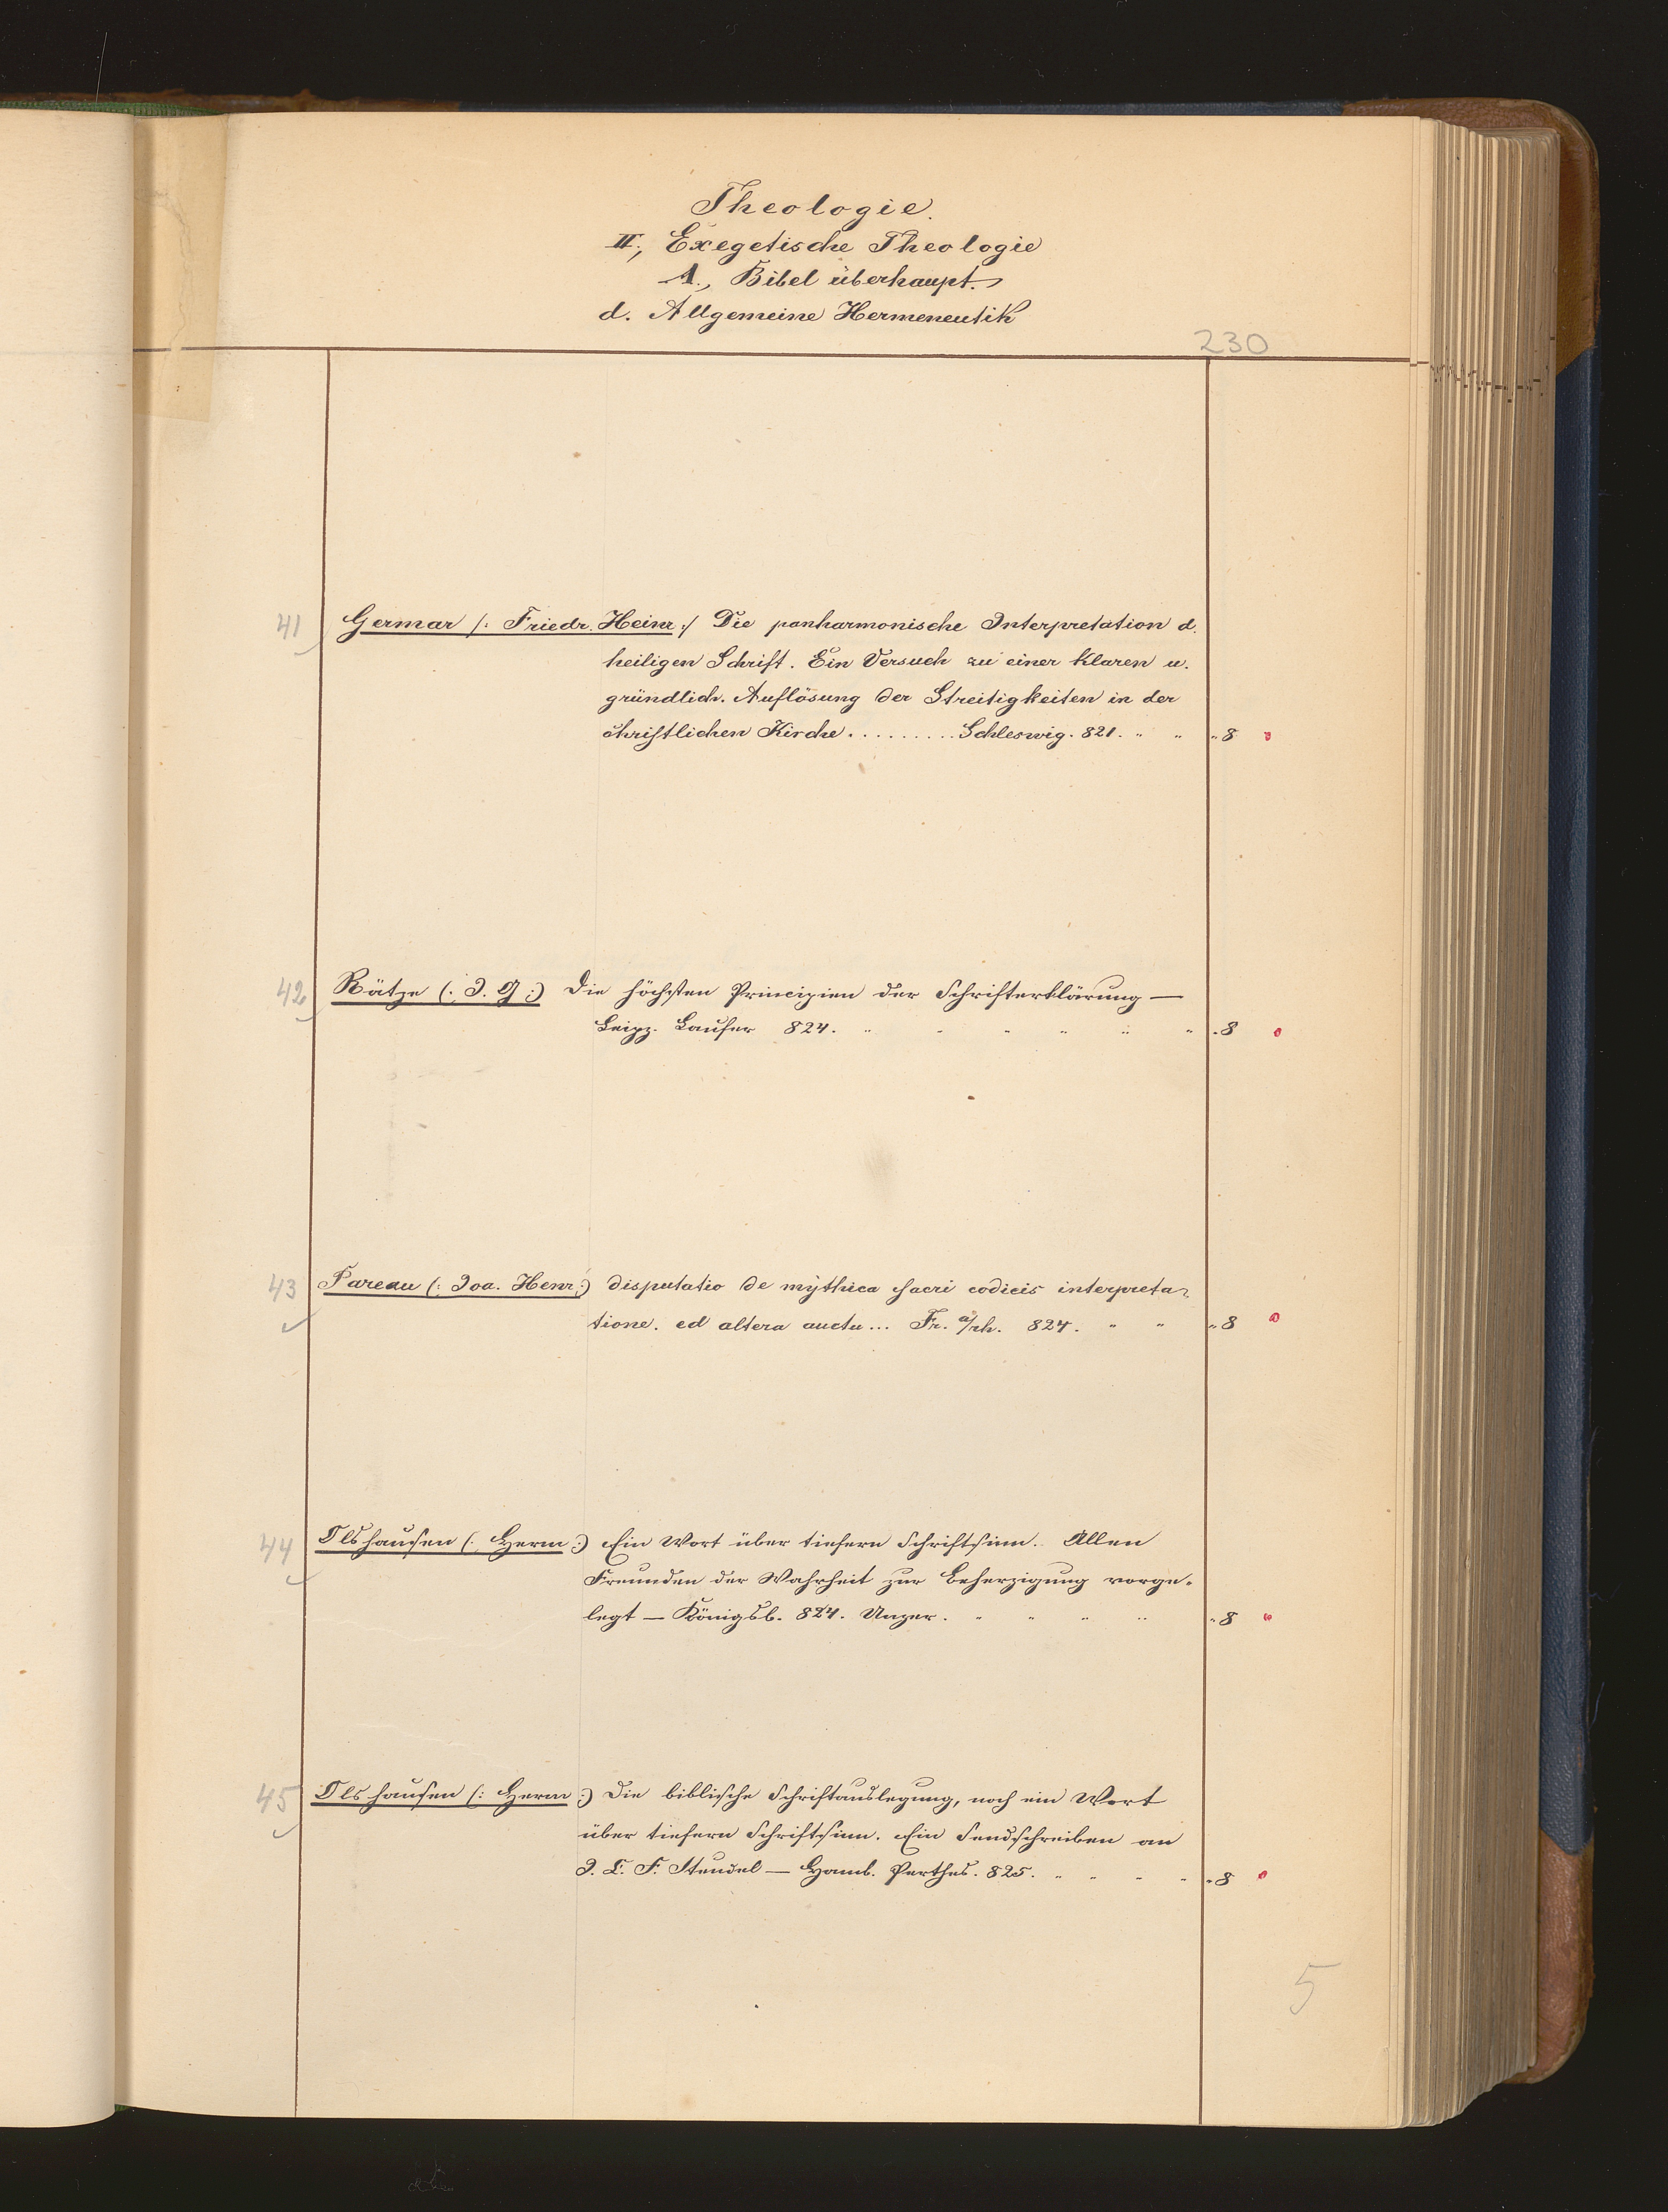 Theologie.
II., Exegetische Theologie
A., Bibel überhaupt.
d. Allgemeine Hermeneutik
230
41 Germar /: Friedr. Heinr :/ Die panharmonische Interpretation d.
heiligen Schrift. Ein Versuch zu einer klaren u.
gründlich. Auflösung der Streitigkeiten in der
christlichen Kirche . . . . . . . . . Schleswig. 821. " " " 8
42 Rätze (: J. G :) Die höchsten Principien der Schrifterklärung —
Leipz. Laufer 824. " " " " " " " 8
43 Pareau (: Joa. Henr :) disputatio de mythica sacri codicis interpreta-
tione. ed altera aucta... Fr. a/rh. 824. " " " 8
44 Olshausen (: Herm :) Ein Wort über tiefern Schriftsinn. Allen
Freunden der Wahrheit zur Beherzigung vorge-
legt — Königsb. 824. Unzer. " " " " " 8
45 Olshausen (: Herm :) Die biblische Schriftauslegung, noch ein Wort
über tiefern Schriftsinn. Ein Sendschreiben an
J. C. F. Steudel — Hamb. Perthes. 825. " " " " " 8
5